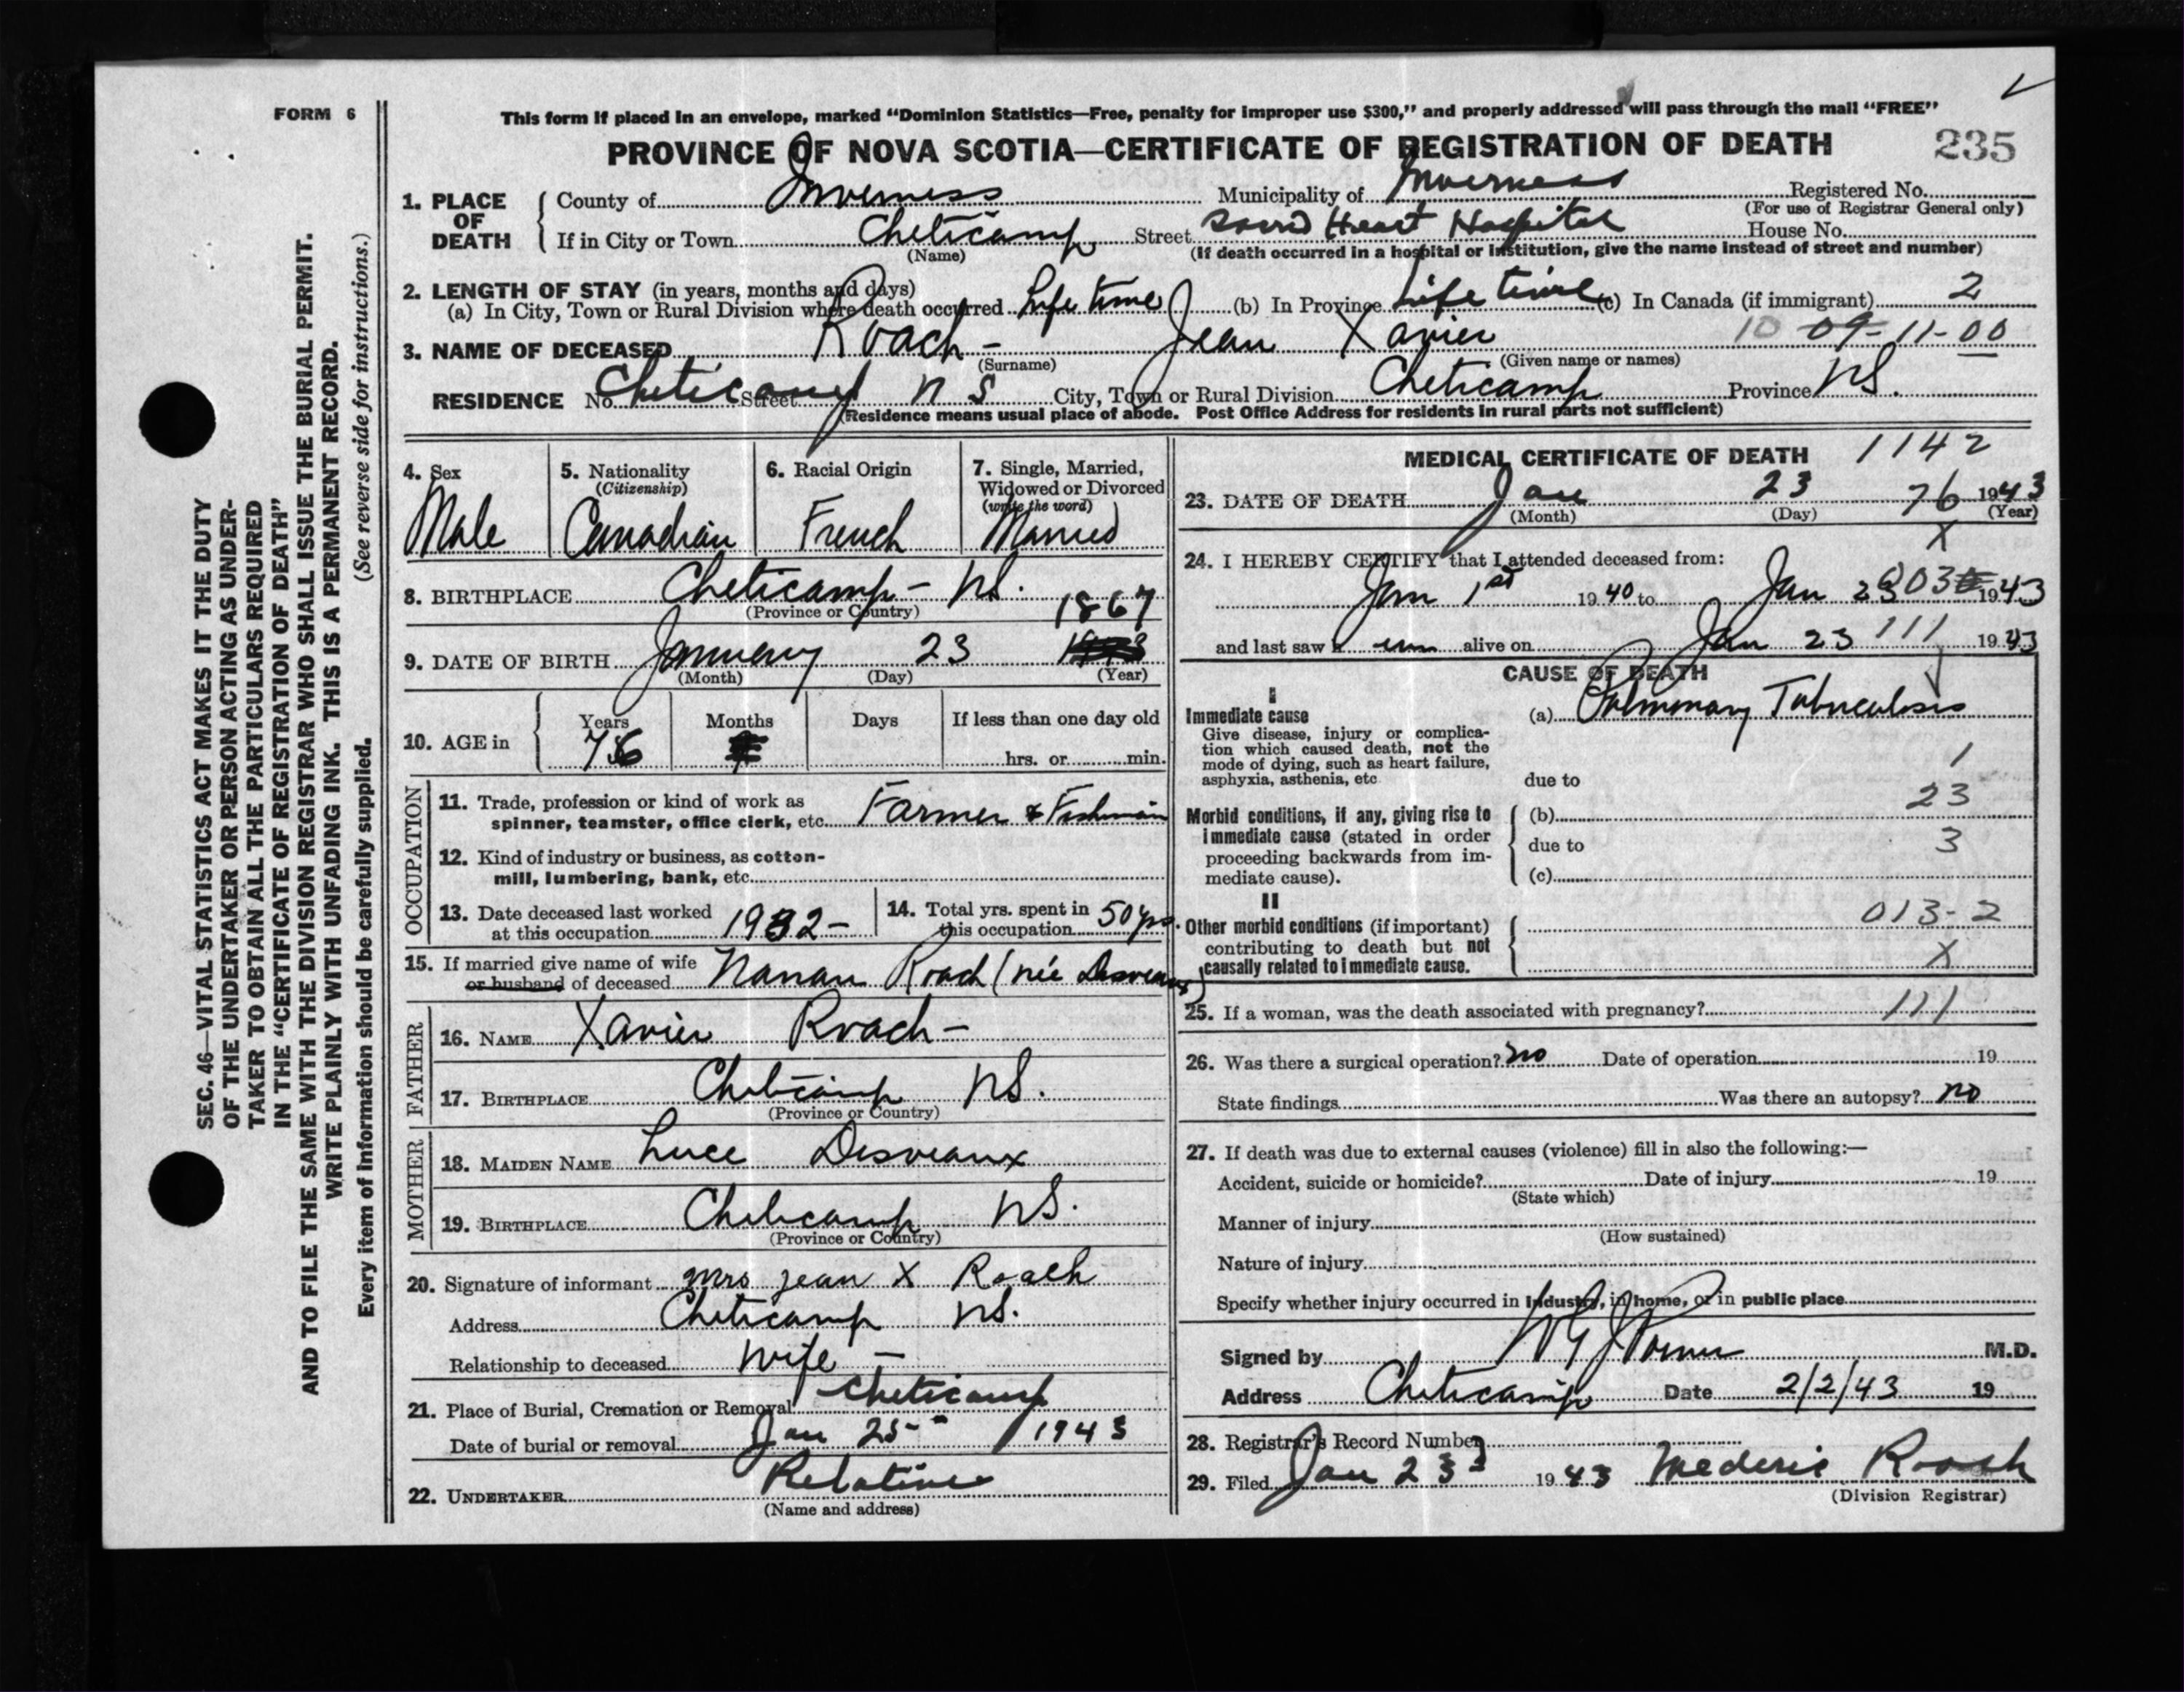 FORM 6
This form if placed in an envelope, marked "Dominion Statistics—Free, penalty for improper use $300," and properly addressed will pass through the mail "FREE"
PROVINCE OF NOVA SCOTIA—CERTIFICATE OF REGISTRATION OF DEATH 235
SEC. 46—VITAL STATISTICS ACT MAKES IT THE DUTY
OF THE UNDERTAKER OR PERSON ACTING AS UNDER-
TAKER TO OBTAIN ALL THE PARTICULARS REQUIRED
IN THE "CERTIFICATE OF REGISTRATION OF DEATH"
AND TO FILE THE SAME WITH THE DIVISION REGISTRAR WHO SHALL ISSUE THE BURIAL PERMIT.
WRITE PLAINLY WITH UNFADING INK. THIS IS A PERMANENT RECORD.
Every item of information should be carefully supplied. (See reverse side for instructions.)
1. PLACE OF DEATH
County of Inverness Municipality of Inverness Registered No.
(For use of Registrar General only)
If in City or Town Cheticamp Street Sacred Heart Hospital House No.
(Name) (If death occurred in a hospital or institution, give the name instead of street and number)
2. LENGTH OF STAY (in years, months and days)
(a) In City, Town or Rural Division where death occurred Life time (b) In Province Life time (c) In Canada (if immigrant) 2
3. NAME OF DECEASED Roach - Jean Xavier 10 09-11-00
(Surname) (Given name or names)
RESIDENCE No. Street Cheticamp N S City, Town or Rural Division Cheticamp Province NS.
(Residence means usual place of abode. Post Office Address for residents in rural parts not sufficient)
4. Sex 5. Nationality 6. Racial Origin 7. Single, Married,
(Citizenship) Widowed or Divorced
(write the word)
Male Canadian French Married
8. BIRTHPLACE Cheticamp - NS.
(Province or Country)
1867
9. DATE OF BIRTH January 23
(Month) (Day) (Year)
10. AGE in Years Months Days If less than one day old
76 hrs. or min.
OCCUPATION
11. Trade, profession or kind of work as
spinner, teamster, office clerk, etc. Farmer & Fishman
12. Kind of industry or business, as cotton-
mill, lumbering, bank, etc.
13. Date deceased last worked
at this occupation 1932 -
14. Total yrs. spent in
this occupation 50 yrs.
15. If married give name of wife
or husband of deceased Nanan Roach (née Desveaux)
FATHER
16. NAME Xavier Roach -
17. BIRTHPLACE Cheticamp NS.
(Province or Country)
MOTHER
18. MAIDEN NAME Luce Desveaux
19. BIRTHPLACE Cheticamp NS.
(Province or Country)
20. Signature of informant Mrs Jean X Roach
Address Cheticamp NS.
Relationship to deceased Wife -
21. Place of Burial, Cremation or Removal Cheticamp
Date of burial or removal Jan 25 1943
22. UNDERTAKER Relative
(Name and address)
MEDICAL CERTIFICATE OF DEATH 1142
23. DATE OF DEATH Jan 23 76 1943
(Month) (Day) (Year)
X
24. I HEREBY CERTIFY that I attended deceased from:
Jan 1st 1940 to Jan 23 803 1943
and last saw him alive on Jan 23 111 1943
CAUSE OF DEATH
I
Immediate cause
Give disease, injury or complica-
tion which caused death, not the
mode of dying, such as heart failure,
asphyxia, asthenia, etc.
(a) Pulmonary Tuberculosis
1
due to
23
Morbid conditions, if any, giving rise to
immediate cause (stated in order
proceeding backwards from im-
mediate cause).
(b)
due to 3
(c)
II
Other morbid conditions (if important)
contributing to death but not
causally related to immediate cause.
013-2
X
25. If a woman, was the death associated with pregnancy? 111
26. Was there a surgical operation? no Date of operation 19
State findings Was there an autopsy? no
27. If death was due to external causes (violence) fill in also the following:—
Accident, suicide or homicide? Date of injury 19
(State which)
Manner of injury
(How sustained)
Nature of injury
Specify whether injury occurred in industry, in home, or in public place
Signed by M.D.
Address Cheticamp Date 2/2/43 19
28. Registrar's Record Number
29. Filed Jan 23 1943 Mederic Roach
(Division Registrar)